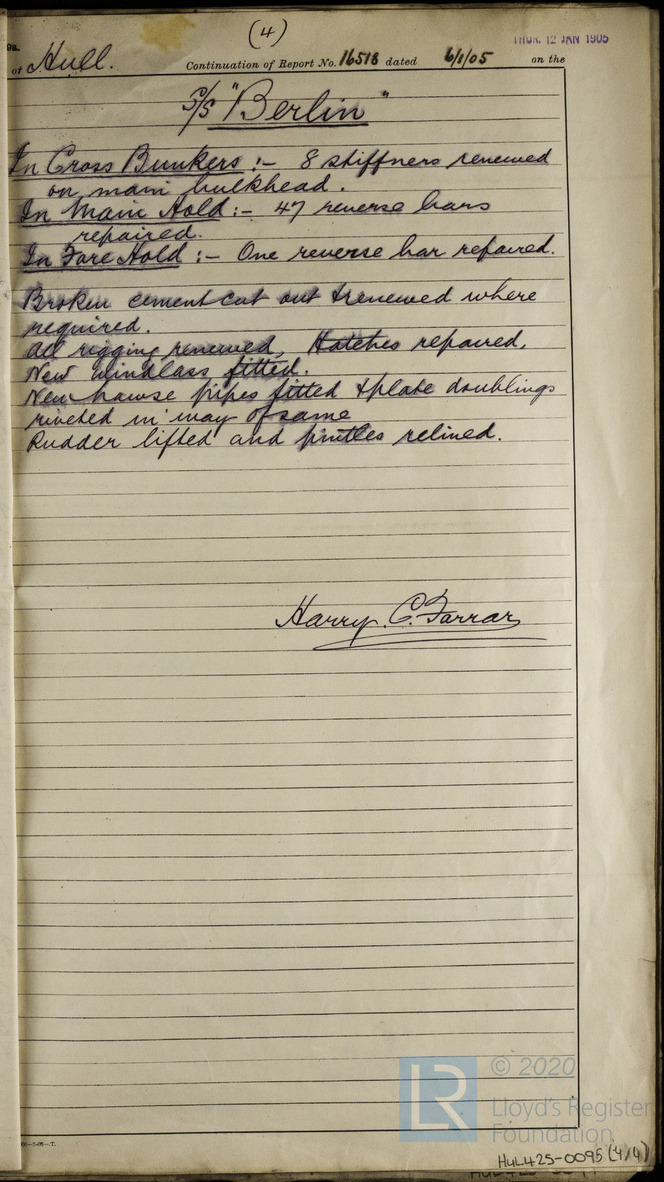 (4)
THUR. 12 JAN 1905
of Hull. Continuation of Report No. 16518 dated 6/1/05 on the
S/S "Berlin"
In Cross Bunkers :- 8 stiffners renewed
on main bulkhead.
In Main Hold :- 47 reverse bars
repaired.
In Fore Hold :- One reverse bar repaired.
Broken cement cut out & renewed where
required.
All rigging renewed, Hatches repaired,
New windlass fitted.
New hawse pipes fitted & plate doublings
riveted in way of same
Rudder lifted and pintles relined.
Harry. C. Farrar
LR © 2020
Lloyd's Register
Foundation
HUL425-0095 (4/4)